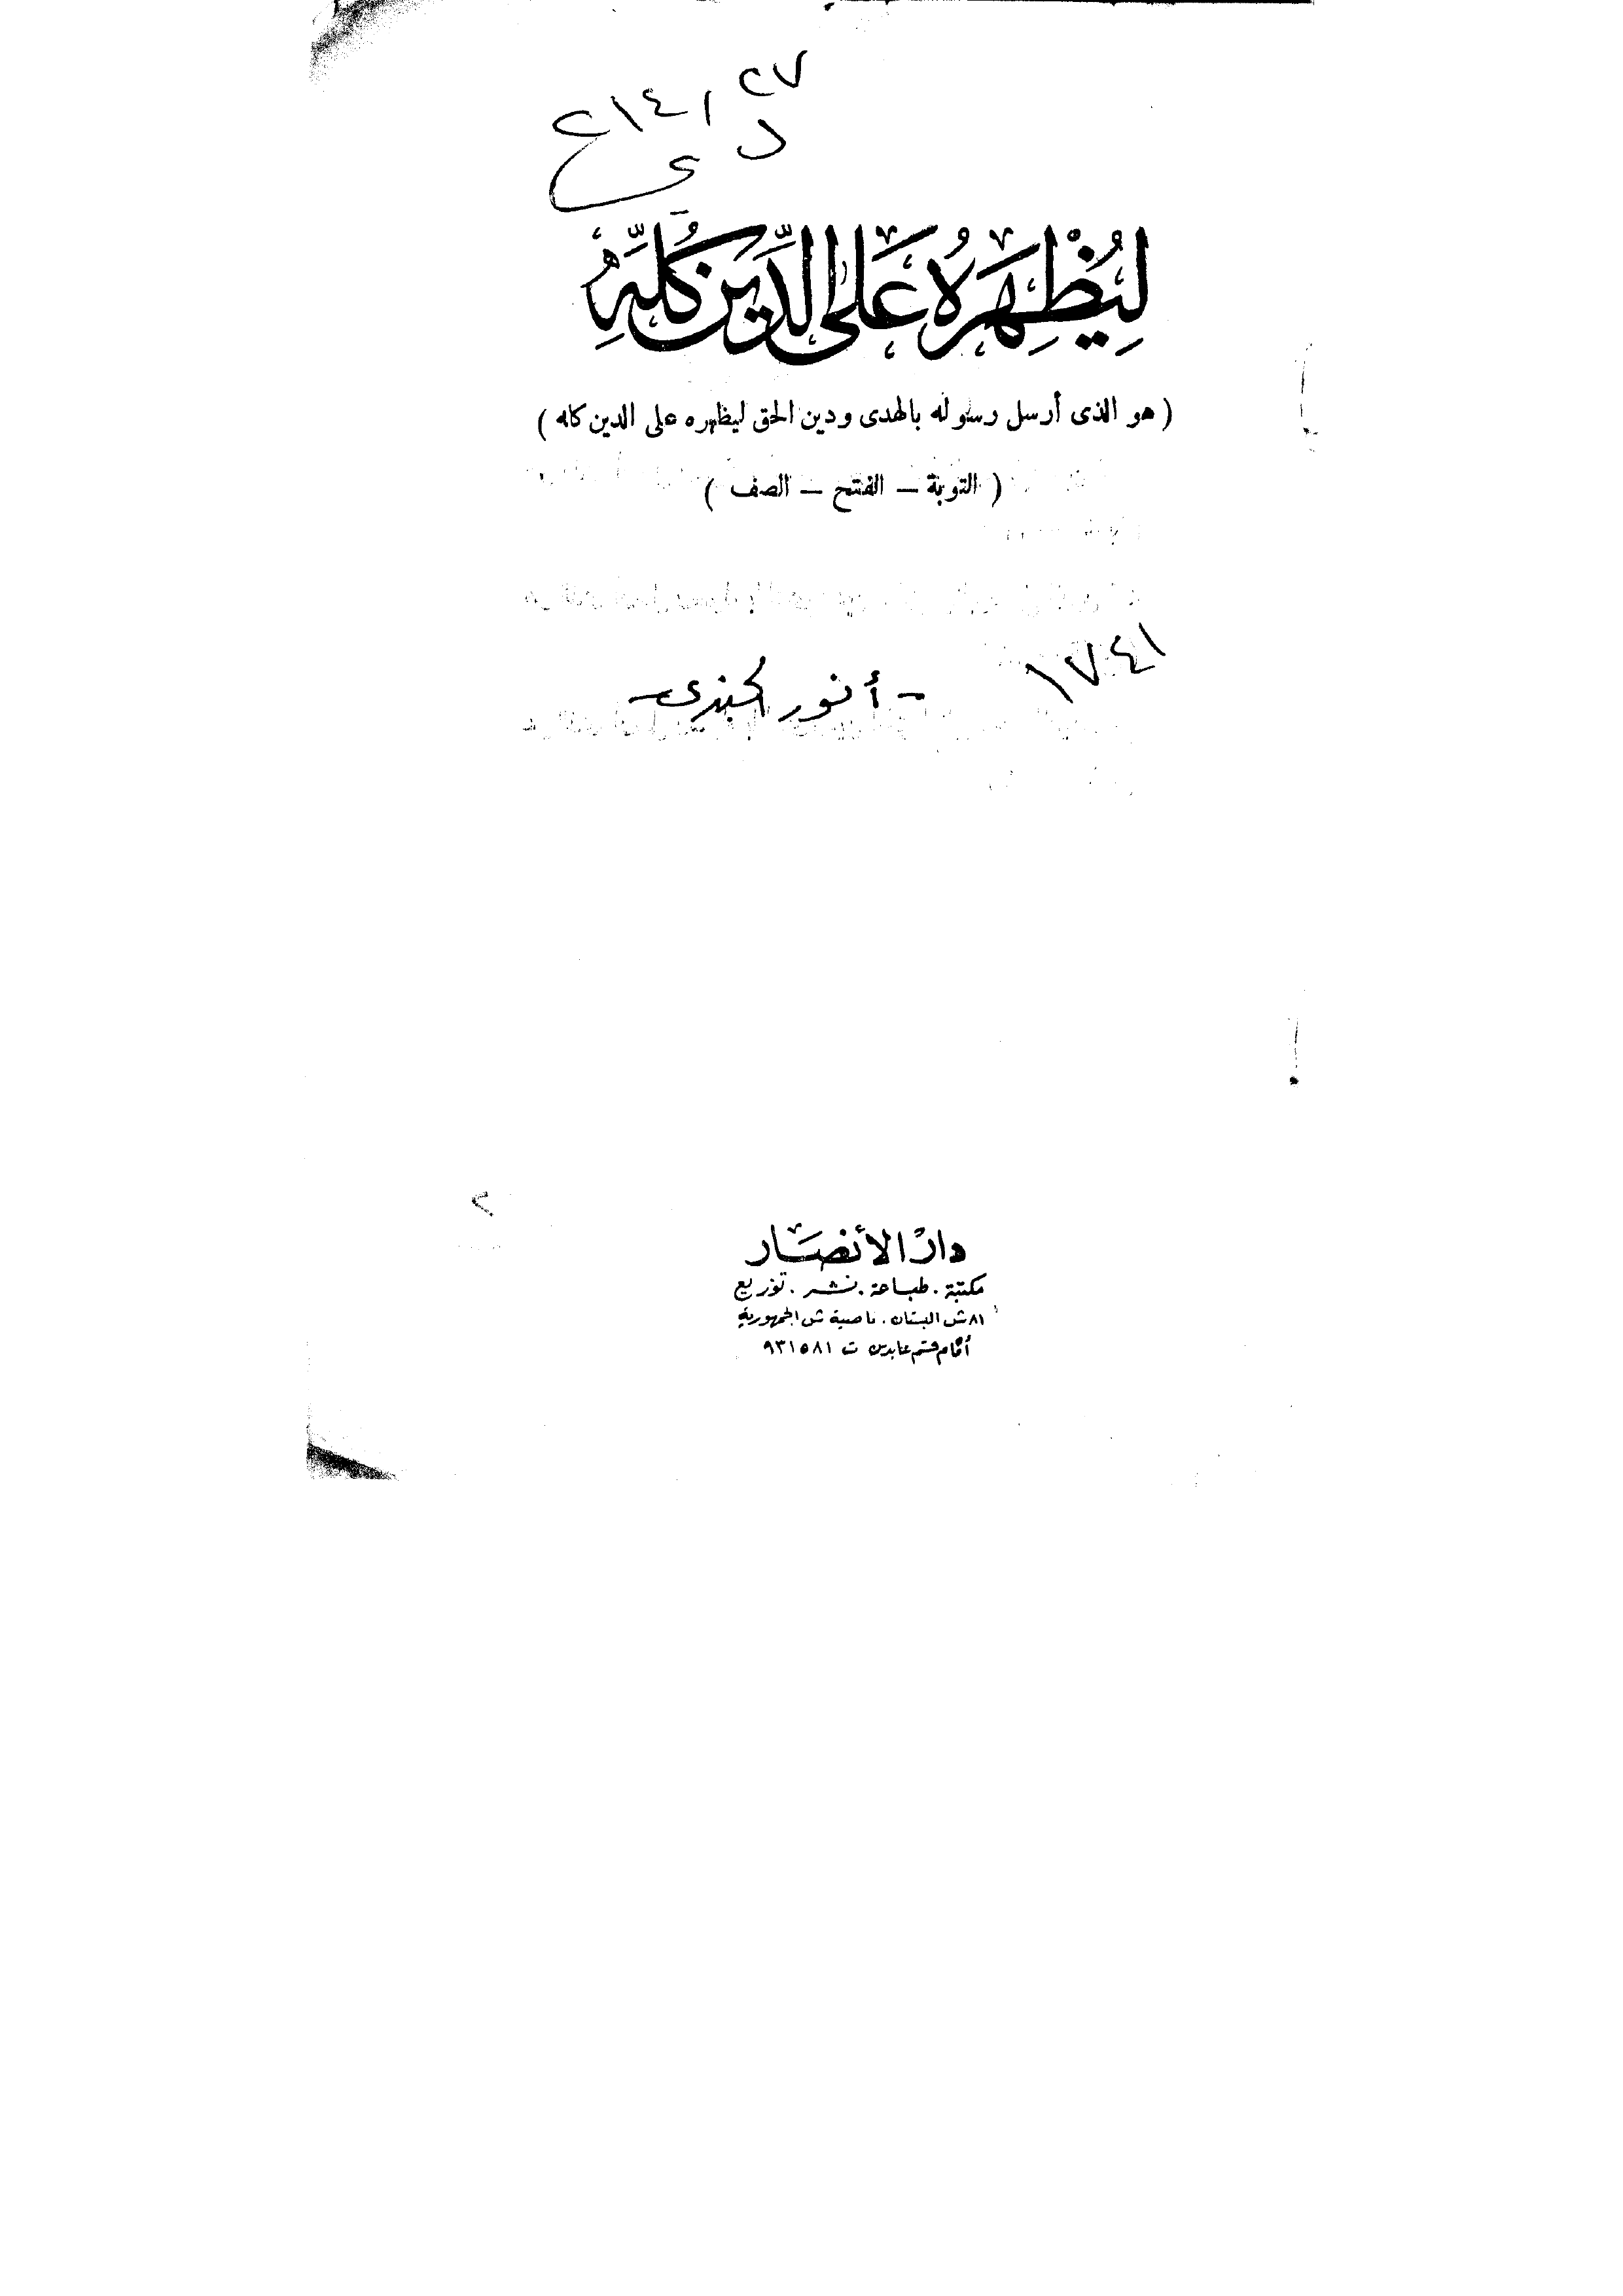 ٢١٤,٢٧
لِيُظْهِرَهُ عَلَى الدِّينِ كُلِّهِ
( هو الذى أرسل رسوله بالهدى ودين الحق ليظهره على الدين كله )
( التوبة – الفتح – الصف )
١٧٤١
- أنور الجندى -
دار الأنصار
مكتبة . طباعة . نشر . توزيع
٨١ ش البستان . ناصية ش الجمهورية
أمام قسم عابدين ت ٩٣١٥٨١